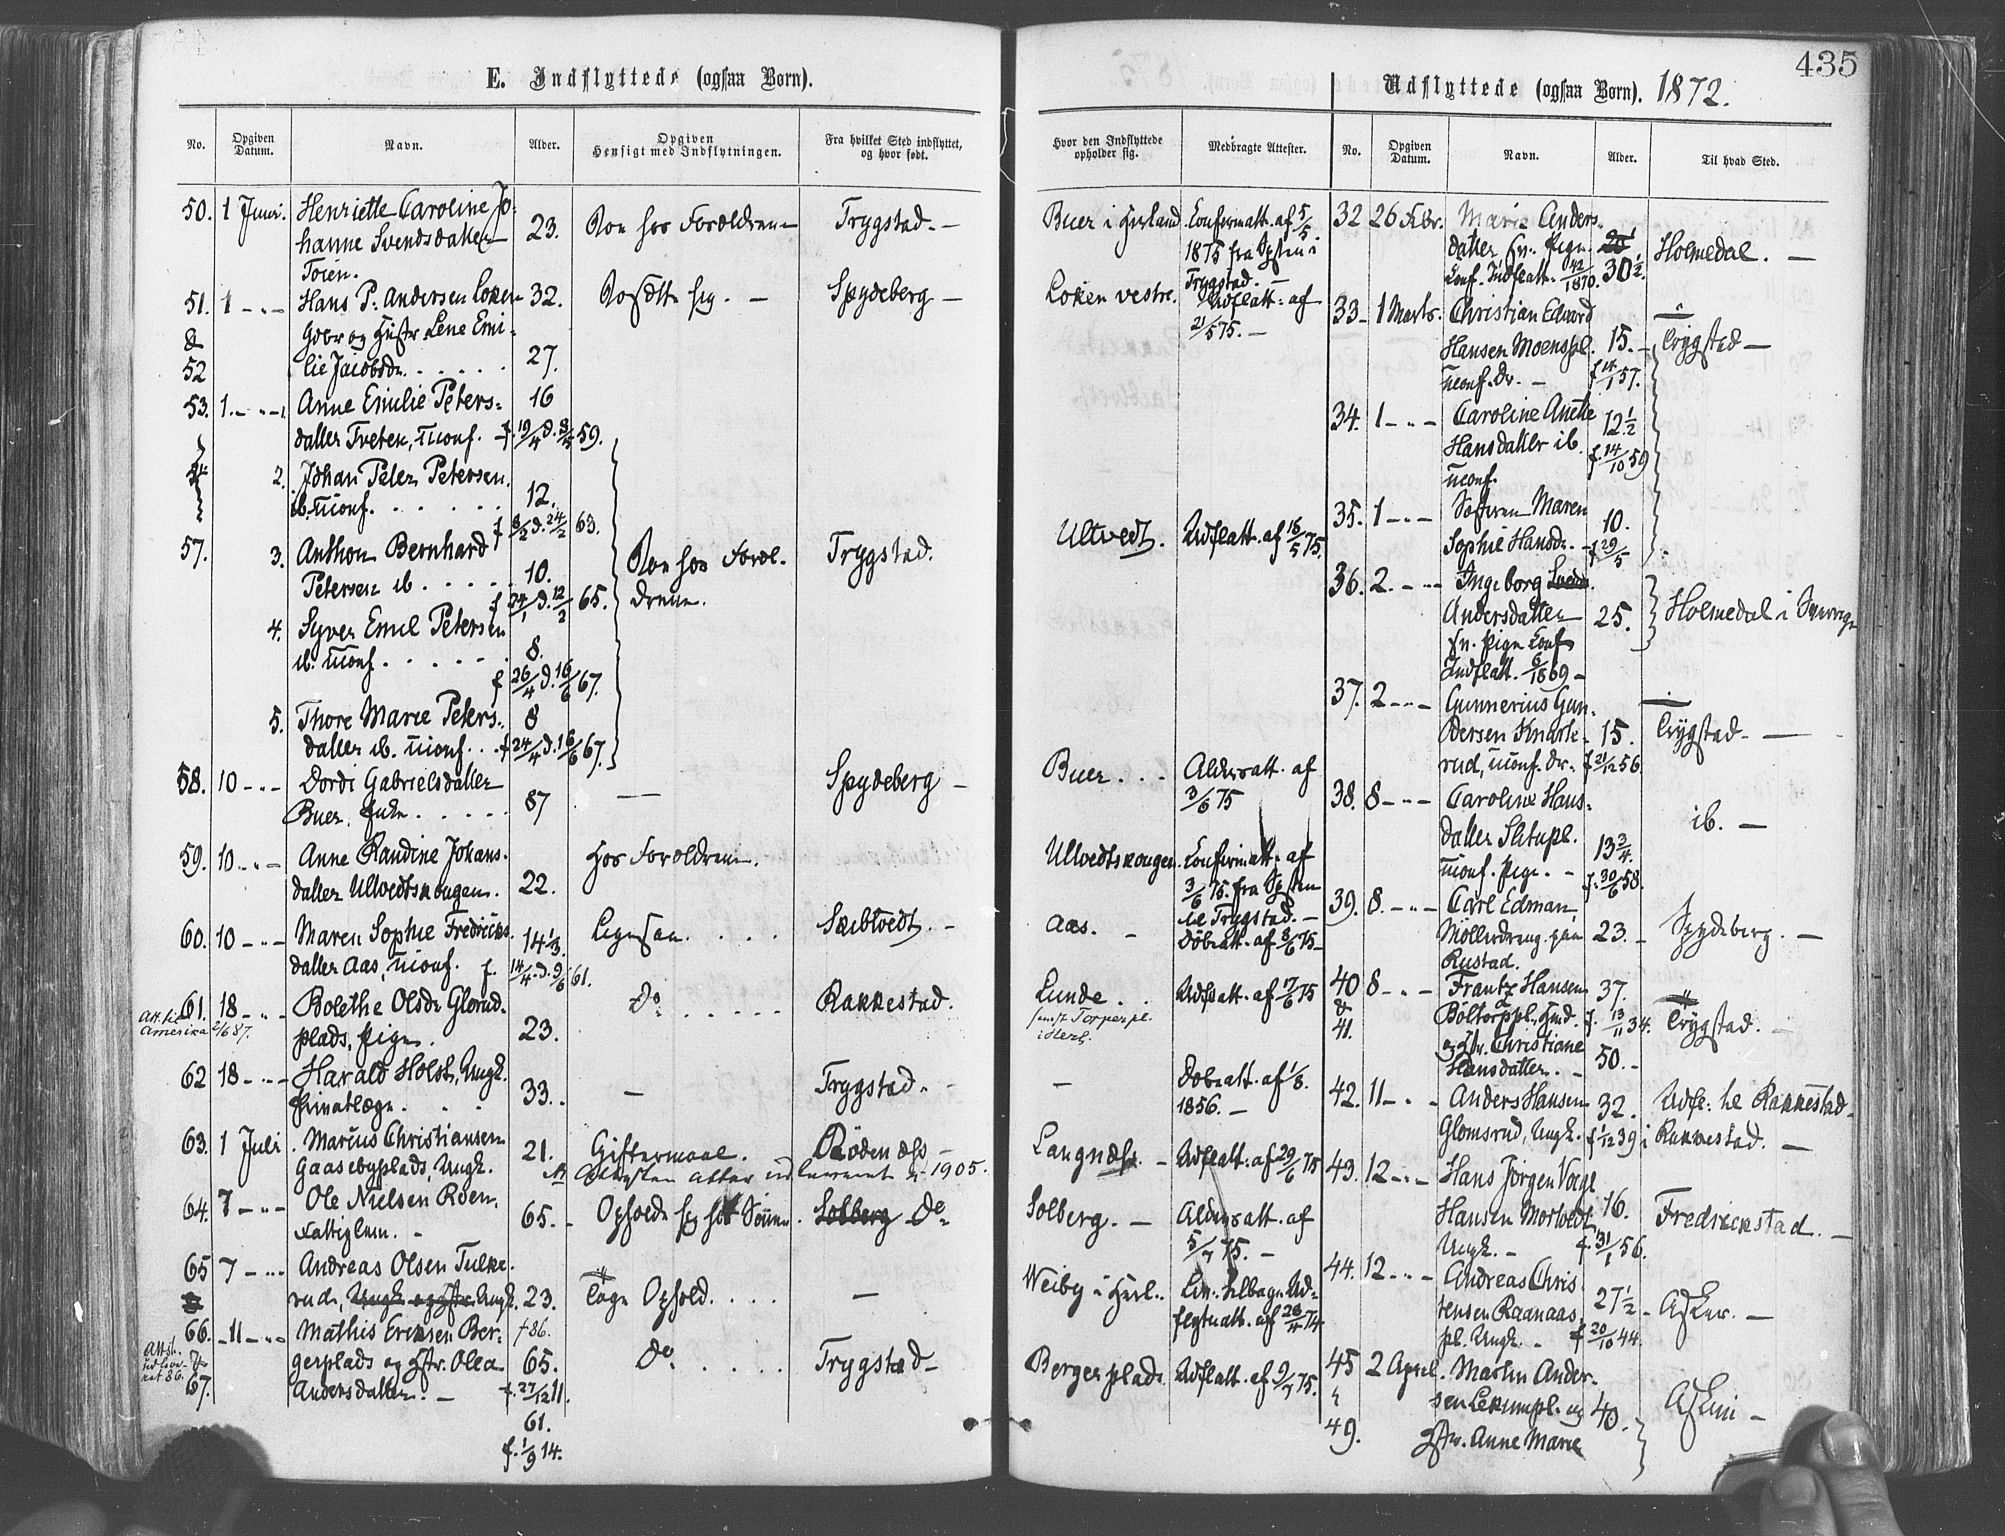 435
E. Indflyttede (ogsaa Børn).
No. Opgiven Datum. Navn. Alder. Opgiven Hensigt med Indflytningen. Fra hvilket Sted indflyttet, og hvor født.
50. 1 Juni. Henriette Caroline Jo-
hanne Svendsdatter 23. hos Forældrene Trygstad. -
Toien.
51. 1 - " - Hans P. Andersen Løken 32. sig. - Spydeberg -
& Gbr og Hustr Lene Emi-
52 lie Jacobsdr. . . . . . 27.
53. 1. - " - 1, Anne Emilie Peters- 16
datter Tveten, Uconf. f. 19/4 d. 8/5 59.
2. Johan Peter Petersen
ib. Uconf. . . . . . . 12.
f 8/2 d. 24/2 63.
57. 3. Anthon Bernhard hos Foræl- Trygstad.
Petersen ib . . . . . 10. drene.
f 24/1 d. 12/2 65.
4. Syver Emil Petersen
ib. Uconf. . . . . . 8.
f 26/4 d. 16/6 67.
5. Thore Marie Peters- 8
datter ib. Uconf. . . f 24/4 d. 16/6 67.
58. 10 - " - Dordi Gabrielsdatter Spydeberg -
Buer, Enke . . . . . 87 —
59. 10 - " - Anne Randine Johans- Hos Forældrene.
datter Ultvedtskougen. 22.
60. 10 - " - Maren Sophie Fredriks- 14 1/3. Ligesaa. . . . . Skibtvedt. -
datter Aas, Uconf. f. 14/4 d. 9/6 61.
61. 18 - " - Bolethe Olsdr Glorud- Do . . . . . . Rakkestad.
Att. til
Amerika 2/6 87. plads, Pige. 23.
62 18 - " - Harald Holst, Ungk. Trygstad. -
Privatlæge. . . . 33. . —
63. 1 Juli . Marcus Christiansen 21. Giftermaal. Rödenæss -
Gaasebyplads, Ungk. 1905.
64. 7 - " - Ole Nielsen Roen, 65. - Ophold sig hos Sönnen. Solberg Do
Fattiglem. -
65 7 - " - Andreas Olsen Tulke-
rud, Ungk og Hstr. Ungk. 23. Tage Ophold. . . . —
66. - 11 - " - Mathis Eriksen Ber- † 86.
& gerplads og Hstr. Olea 65. Do . . . . . Trygstad -
67. Andersdatter. - f. 27/12 11.
61.
f. 1/9 14.
Hvor den Indflyttede opholder sig. Medbragte Attester.
Buer i Herland Confirmatt. af 5/5
1875 fra Spsten i
Trygstad. -
Løken vestre. Udflatt. af
21/5 75. -
Ultvedt. Udflatt. af 16/5 75.
Buer . . . Aldersatt. af
3/6 75
Ultvedtskougen. Confirmatt. af
3/6 75. fra Spsten
til Trygstad. -
Aas. - Döbeatt. af 8/6 75 -
Lunde . . Udflatt. af 17/6 75
Torperpl.
i Herl.
— Dobeatt. af 1/8.
1856. -
Langnæss. - Udflatt. af 29/6 75
Solberg. - Aldersatt. af
5/7 75. -
Weiby i Herl. . Lev. tilbage Ud-
flytnatt. af 28/4 74
Bergerplads Udflatt. af 9/7 75.
Udflyttede (ogsaa Børn). 1872.
No. Opgiven Datum. Navn. Alder. Til hvad Sted.
32 26 Febr. Marie Anders-
datter, fv. Pige. Holmedal. -
Conf. Indflatt. 42/1870. 30 1/2.
33 - 1 Marts. Christian Edvard
Hansen Moenspl. 15. - Trygstad -
Uconf. Dr. - f 14/1 57.
34. 1 - " - Caroline Anette 12 1/2
Hansdatter ib. f. 14/10 59
Uconf.
35. 1 - " - Søfren Maren 10.
Sophie Hansdr. - f 29/5
36. 2. - " - Ingeborg
Andersdatter 25. Holmedal i Sverrige
fv. Pige Conf
Indflatt. 6/1869 -
37. 2 - " - Gunnerius Gun-
dersen Knatte- 15. Trygstad. -
rud, Uconf. Dr. f 21/12 56.
38. 8 - " - Caroline Hans- ib. -
datter Slitupl. 13 3/4.
Uconf. Pige. - f. 30/6 58.
39. 8. - " - Carl Edman,
Møllerdreng paa 23. - Spydeberg. -
Rustad.
40 8 - " - Frantz Hansen 37.
& Böltorppl., Hmd. f. 13/11 34. Trygstad. -
41. og Hstr. Christiane
Hansdatter. - 50. -
42. 11 - " - Anders Hansen 32. Udfl. til Rakkestad -
Glomsrud, Ungk. f 1/12 39 i Rakkestad. -
43. 12 - " - Hans Jörgen Vogl
Hansen Mortvedt 16. Fredrickstad. -
Ungk. - f. 31/1 56.
44. 12 - " - Andreas Chris-
tensen Raanaas 27 1/2 - Asker. -
pl. Ungk. - f 20/10 44.
45 2 April. Martin Ander-
" sen Lekumpl. og 40. Askim -
49. Hstr. Anne Marie